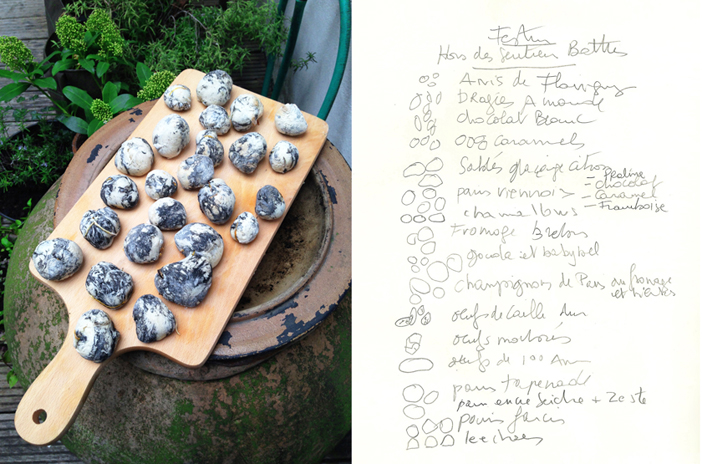 Festin
Hors des Sentier Battus
Anis de Flavigny
Dragées Amande
chocolat Blanc
Caramels
Sablés glaçage citron
– Praline
pains viennois – chocolat
– Caramel
chamallows – Framboise
Fromage Breton
gouda et babybel
champignons de Paris au fromage
et
oeufs de Caille dur
oeufs marbrés
oeufs de 100 Ans
pains tapenade
pain encre Seiche + Zeste
pains farcis
leechees